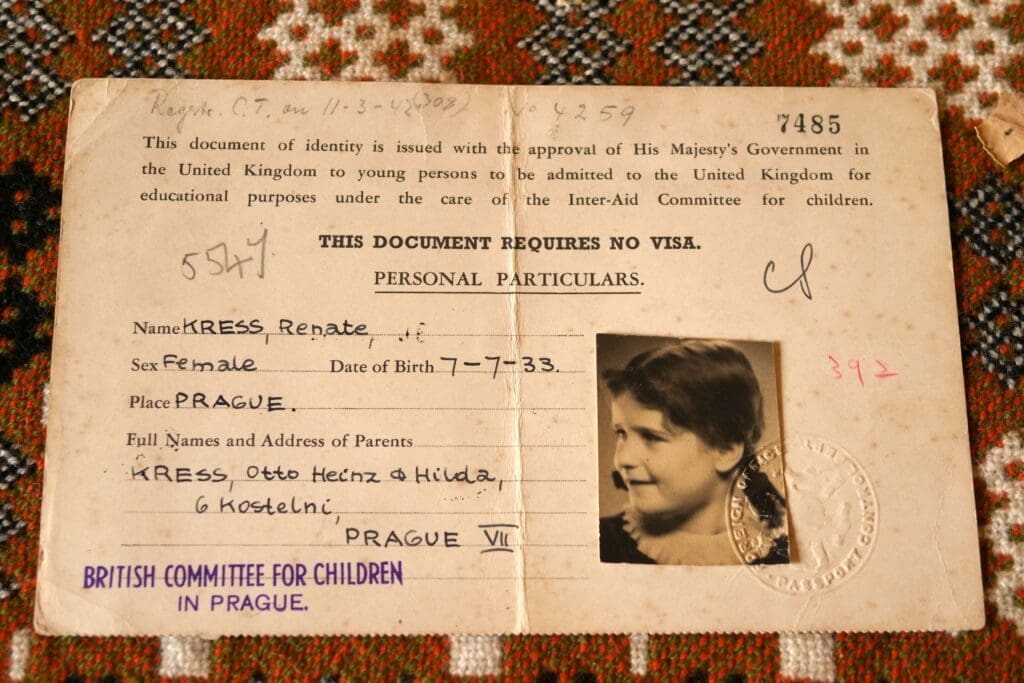 Registr. C.T. on 11-3-42 (308) No 4259
7485
This document of identity is issued with the approval of His Majesty's Government in
the United Kingdom to young persons to be admitted to the United Kingdom for
educational purposes under the care of the Inter-Aid Committee for children.
THIS DOCUMENT REQUIRES NO VISA.
5547
PERSONAL PARTICULARS.
Name KRESS, Renate,
Sex Female Date of Birth 7-7-33.
392
Place PRAGUE.
Full Names and Address of Parents
KRESS, Otto Heinz & Hilda,
6 Kostelni,
PRAGUE VII
PASSPORT
BRITISH COMMITTEE FOR CHILDREN
IN PRAGUE.